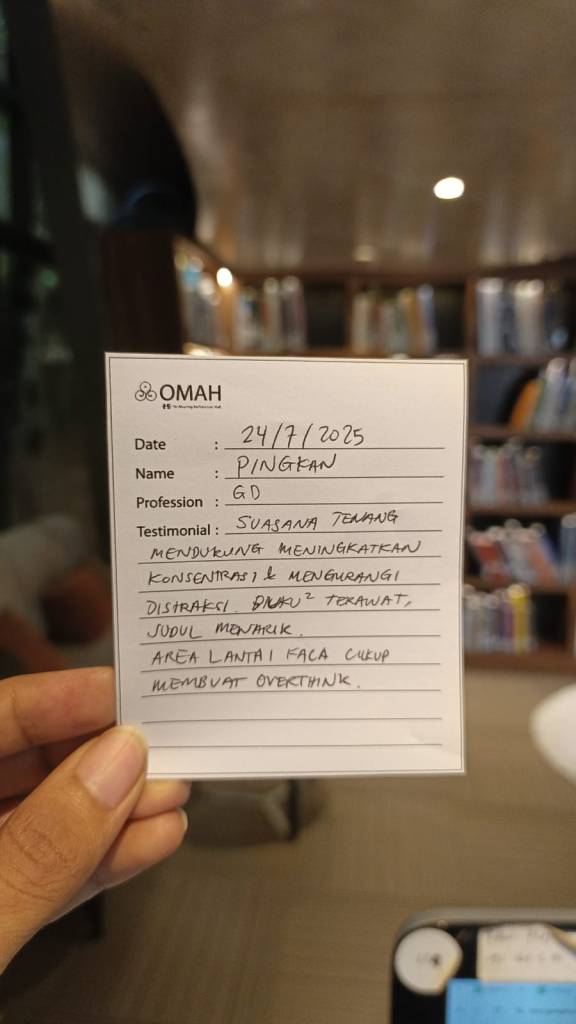 OMAH
Date : 24/7/2025
Name : PINGKAN
Profession : GD
Testimonial : SUASANA TENANG
MENDUKUNG MENINGKATKAN
KONSENTRASI & MENGURANGI
DISTRAKSI. BUKU² TERAWAT,
JUDUL MENARIK.
AREA LANTAI KACA CUKUP
MEMBUAT OVERTHINK.